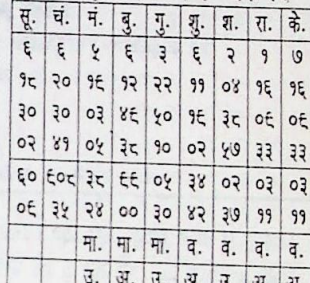 सू. चं. मं. बु. गु. शु. श. रा. के.
६ ६ ५ ६ ३ ६ २ १ ७
१८ २० १९ १२ २२ ११ ०४ १६ १६
३० ३० ०३ ४९ ५० १९ ३८ ०९ ०९
०२ ४१ ०५ ३८ १० ०२ ५७ ३३ ३३
६० ९०८ ३८ ९९ ०५ ३४ ०२ ०३ ०३
०९ ३५ २४ ०० ३० ४२ ३७ ११ ११
मा. मा. मा. व. व. व. व.
उ. अ. उ अ उ अ अ